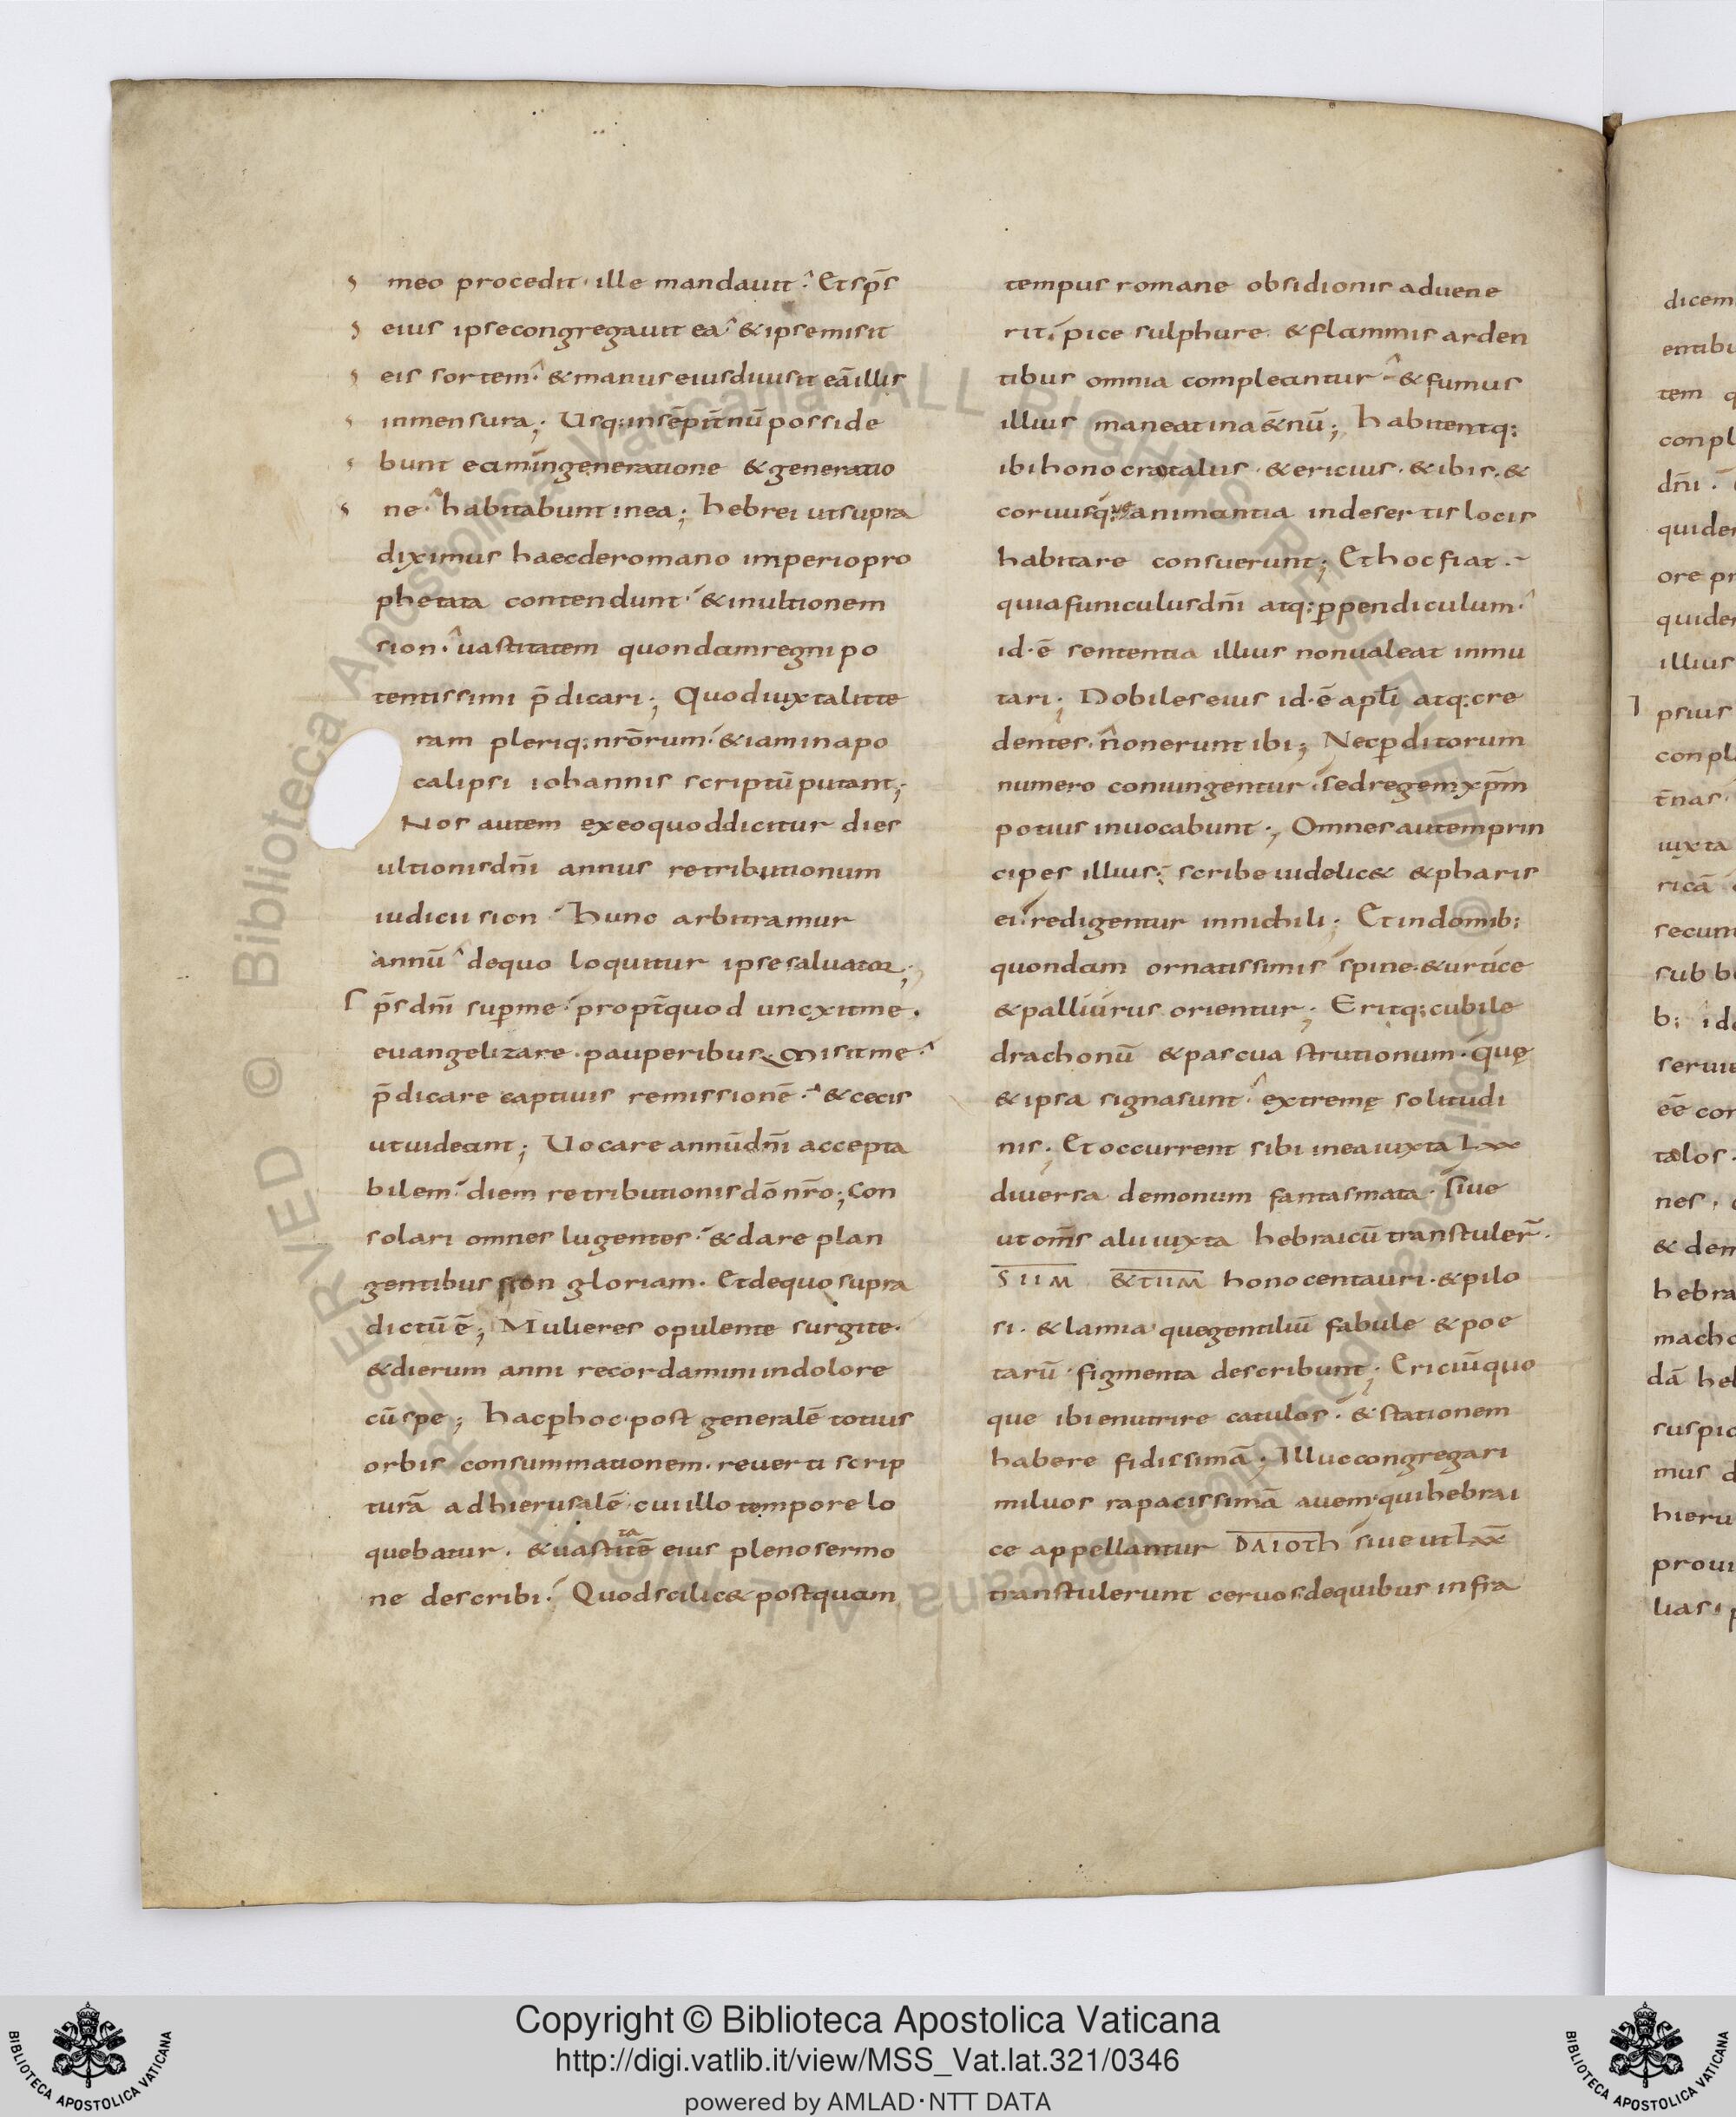 meo procedit· ille mandauit· Et sp̄s
eius ipse congregauit ea· & ipse misit
eis sortem· & manus eius diuisit eā illis
in mensura; Usq: in sēpit̄nū posside
bunt eam in generatione & generatio
ne· habitabunt in ea; hebrei ut supra
diximus haec de romano imperio pro
phetata contendunt· & in ultionem
sion· uastitatem quondam regni po
tentissimi p̄dicari; Quod iuxta litte
ram pleriq: nrōrum· & iam in apo
calipsi iohannis scriptū putant;
Nos autem ex eo quod dicitur dies
ultionis dn̄i annus retributionum
iudicii sion· hunc arbitramur
annū· de quo loquitur ipse saluator;
sp̄s dn̄i sup̱ me· propt̄ quod uncxit me·
euangelizare· pauperibus· misit me·
p̄dicare captiuis remissionē· & cecis
ut uideant; Uocare annū dn̄i accepta
bilem· diem retributionis dō nr̄o; Con
solari omnes lugentes· & dare plan
gentibus sion gloriam· Et de quo supra
dictū ē; Mulieres opulente surgite·
& dierum anni recordamini in dolore
cū spe; hac p̱ hoc· post generalē totius
orbis consummationem· reuerti scrip
turā ad hierusalē· cui illo tempore lo
quebatur· & uastitatē eius pleno sermo
ne describi· Quod scilic& postquam
tempus romane obsidionis aduene
rit· pice sulphure· & flammis arden
tibus omnia compleantur· & fumus
illius maneat in a&̄nū; habitentq:
ibi honocratalus· & ericius· & ibis· &
coruus animantia in desertis locis
habitare consuerunt; Et hoc fiat·
quia funiculus dn̄i atq: p̱pendiculum·
id· ē sententia illius non ualeat inmu
tari; Nobiles eius id· ē apl̄i atq: cre
dentes· n̄on erunt ibi; Nec p̱ditorum
numero coniungentur· sed regem xp̄m
potius inuocabunt; Omnes autem prin
cipes illius· scribe uidelic& & pharis
ei· redigentur in nichili; Et in domib:
quondam ornatissimis spine· & urtice
& palliurus orientur; Eritq: cubile
drachonū & pascua strutionum· quę
& ipsa signa sunt· extremę solitudi
nis; Et occurrent sibi in ea iuxta Lxx
diuersa demonum fantasmata· siue
ut om̄s alii iuxta hebraicū transtuler̄·
SIIM &TIIM honocentauri· & pilo
si· & lamia· que gentiliū fabule & poe
tarū· figmenta describunt; Ericiū quo
que ibi enutrire catulos· & stationem
habere fidissimā· Illuc congregari
miluos rapacissimā auem· qui hebrai
ce appellantur DAIOTH siue ut Lxx
transtulerunt ceruos de quibus infra
dicem
tem
conpl
dn̄i·
quide
ore pr
quide
illius
Ipsius
conpl
t̄nas·
iuxta
ricā
secun
sub b
b: ide
serui
eē con
talos·
nes·
& dem
hebra
macho
dā heb
suspic
mus d
hieru
proui
lias· p
Copyright © Biblioteca Apostolica Vaticana
http://digi.vatlib.it/view/MSS_Vat.lat.321/0346
powered by AMLAD·NTT DATA
BIBLIOTECA APOSTOLICA VATICANA
BIBLIOTECA APOSTOLICA VATICANA